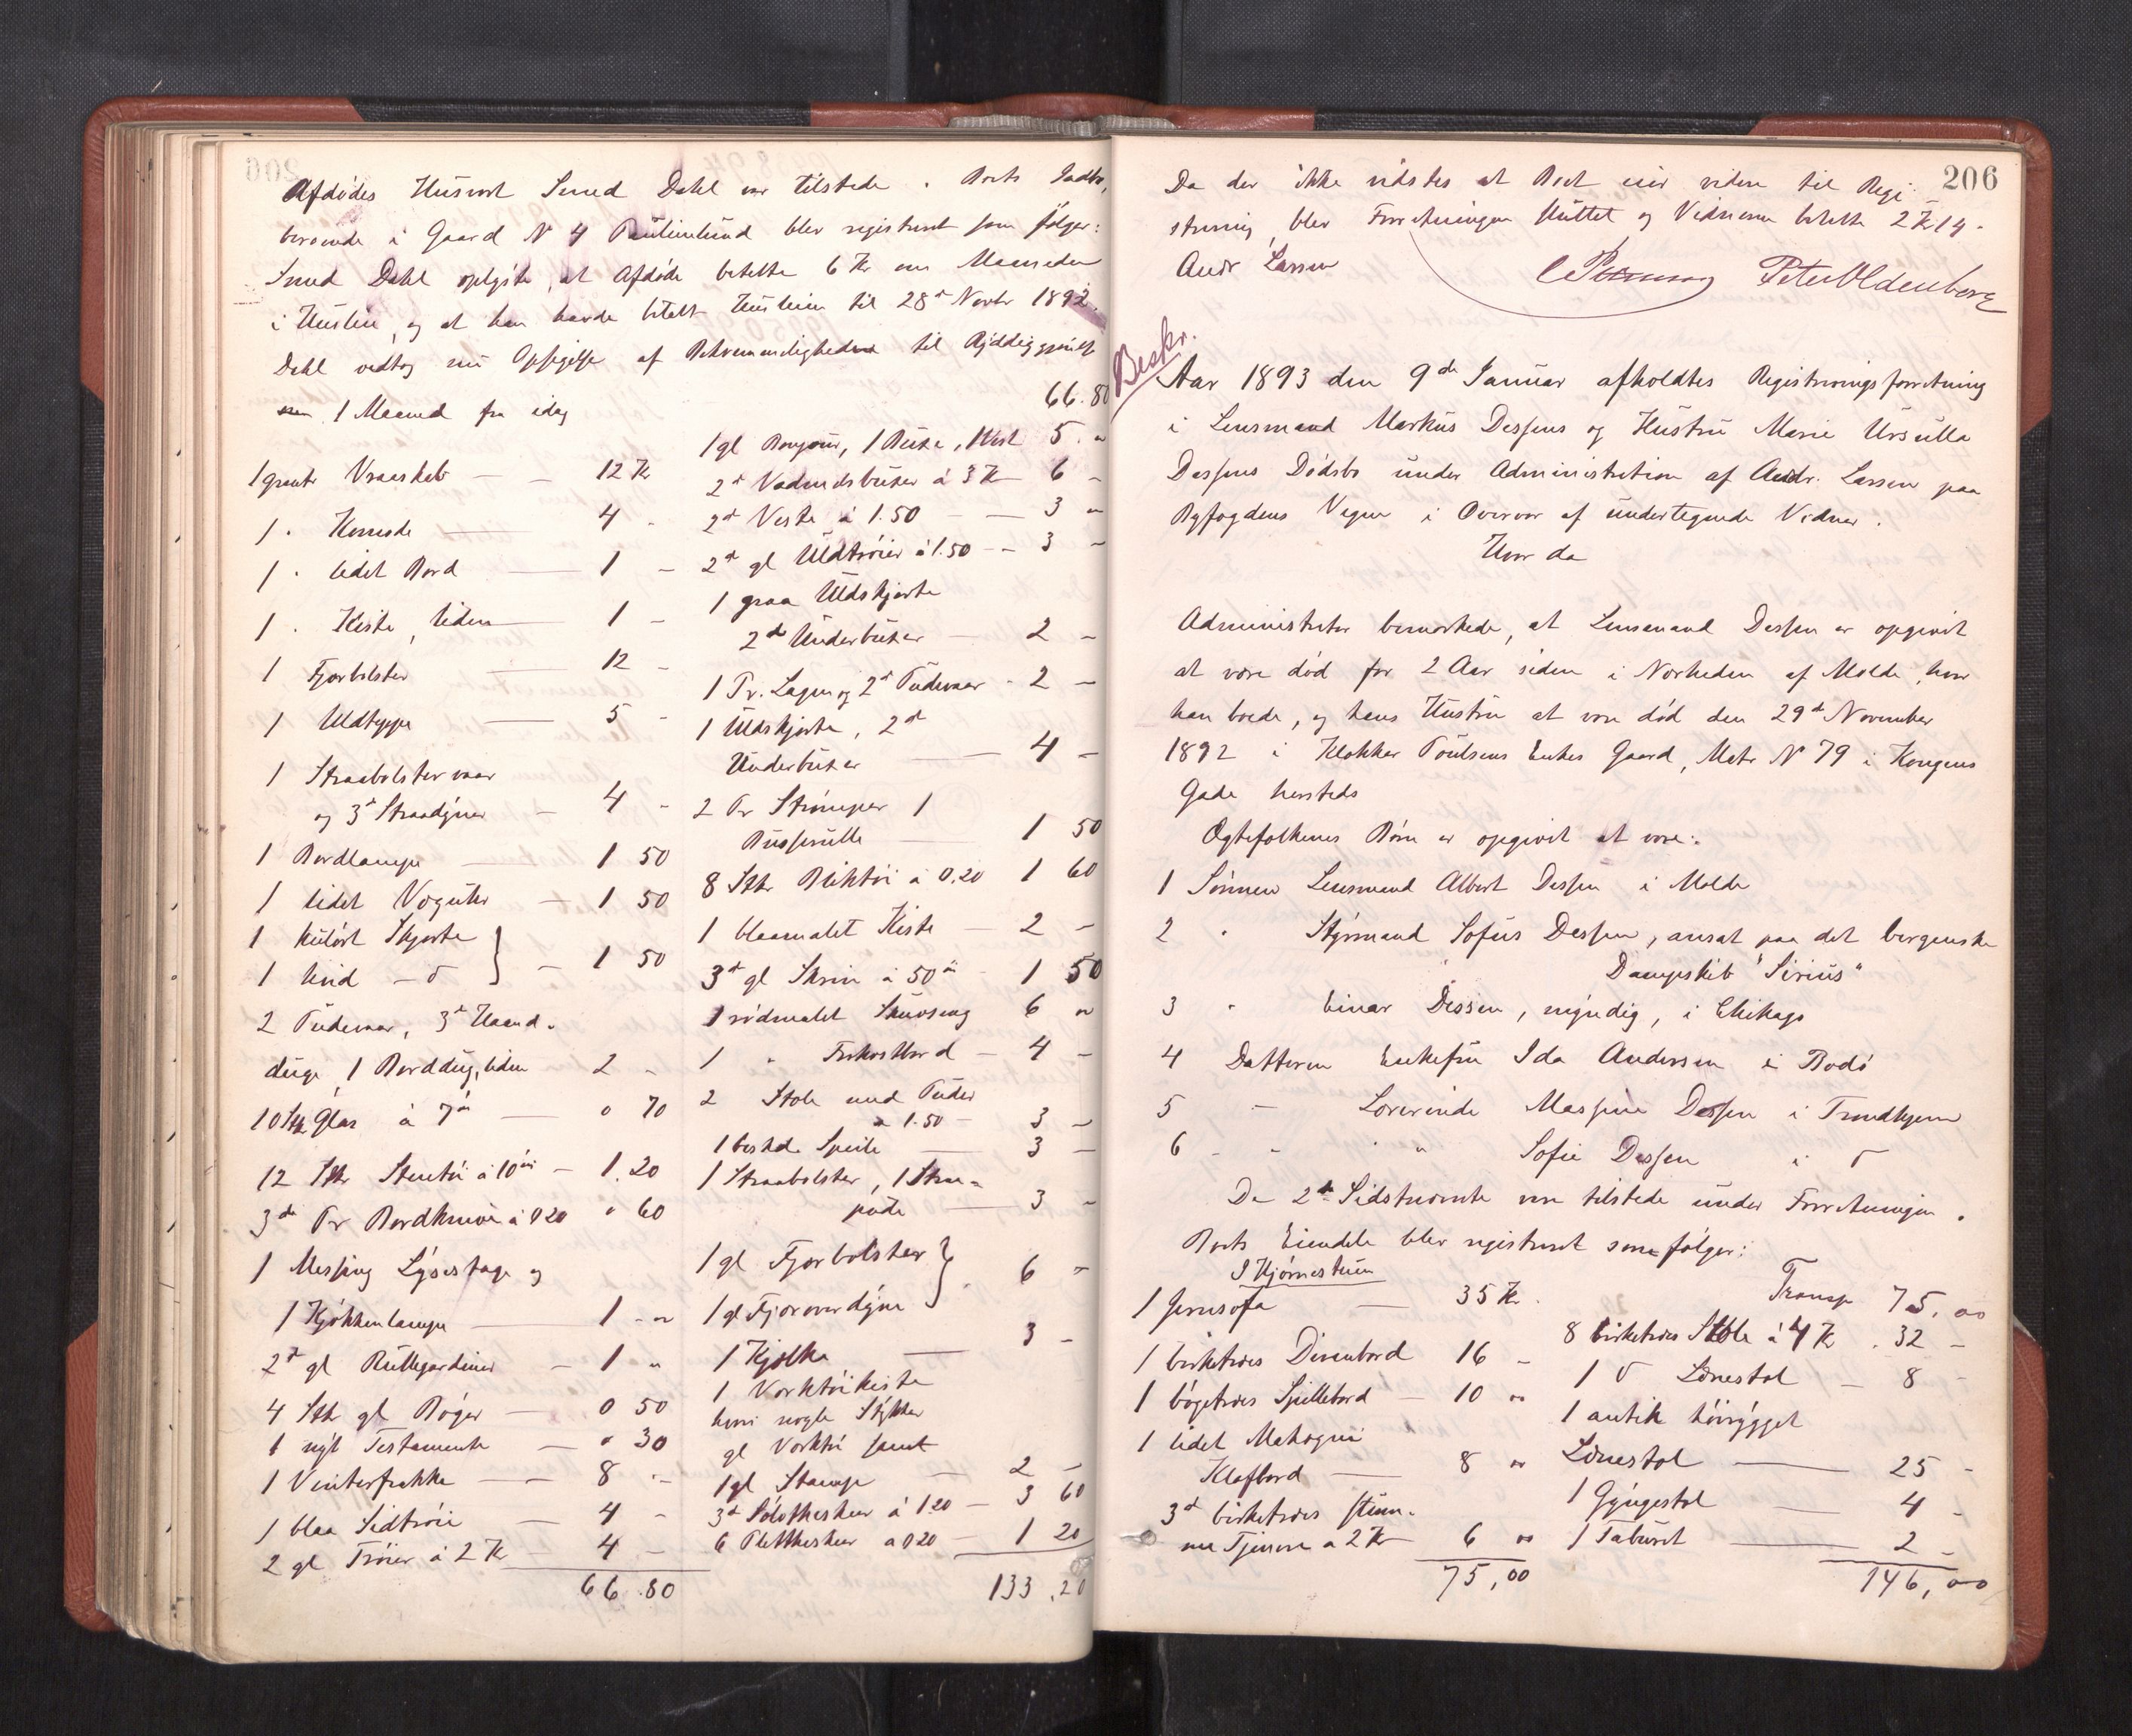 Afdødes Husvert Smed Dahl var tilstede. Boets Indbo,
beroende i Gaard N 4 Paulinelund blev registreret som følger:
Smed Dahl oplyste, at Afdøde betalte 6 Kr om Maaneden
i Husleie, og at han havde betalt Husleien til 28d Novbr 1892.
Dahl vedtog nu Opsigelse af Bekvemmeligheden til Ryddiggjørelse
1 Maaned fra idag
1 Vraaskab — — 12 Kr
1 " Komode — 4 -
1 " lidet Bord — 1 -
1 " Kiste, liden — 1 -
1 Fjærbolster — 12 -
1 Uldteppe — 5 -
1 Straabolstervaar
og 3d Straadyner — 4 -
1 Bordlampe — 1 50
1 lidet Væguhr — 1 50
1 kulørt Skjorte
1 hvid — d } — 1 50
2 Pudevaar, 3d Haand-
duge, 1 Borddug, liden 2 -
10 Stk Glas à 7 ør — " 70
12 Stk Stentøi à 10 ør — 1.20
3d Pr Bordknive à 0 20 " 60
1 Messing Lysestage og
1 Kjøkkenlampe — 1 - "
2d gl Rullegardiner — 1 "
4 Stk gl Bøger — 0 50
1 nyt Testamente — " 30
1 Vinterfrakke — 8 "-
1 blaa Sidtrøie — 4 -
2 gl Trøier à 2 Kr — 4 -
66.80
66.80
1 gl Bonjour, 1 Buxe, 1 Vest 5. "
2d Vadmelsbuxer à 3 Kr 6 -
2d Veste à 1.50 — 3 "
2d gl Uldtrøier à 1.50 — 3 -
1 graa Uldskjorte
2d Underbuxer — 2 -
1 Pr. Lagen og 2d Pudevaar - 2 -
1 Uldskjorte, 2d
Underbuxer — 4 -
2 Pr Strømper 1
Busserulle — 1 50
8 Stk Bliktøi à 0.20 1 60
1 blaamalet Kiste — 2 -
3d gl Skrin à 50 ør - 1 50
1 rødmalet Skuvseng 6 "
1 " Frokostbord — 4 -
2 Stole med Puder
à 1.50 — 3 -
1 Speile — 3 -
1 Straabolster, 1 Straa-
pude — 3 -
1 gl Fjærbolster
1 gl Fjæroverdyne } 6 -
1 Kjelke — 3 -
1 Værktøikiste
hvori nogle Stykker
gl Værktøi samt
1 gl Stampe — 2 -
3d Sølvtheskeer à 1.20 — 3 60
6 Pletttheskeer a 0 20 — 1 20
133.20
206
Da der ikke vidstes at Boet eier videre til Regi-
strering, blev Forretningen sluttet og Vidnerne betalte 2 Kr 14.
Andr Larsen
Peter Oldenborg
Beskr.
Aar 1893 den 9de Januar afholdtes Registreringsforretning
i Lensmand Markus Dessens og Hustru Marie Ursulla
Dessens Dødsbo under Administration af Andr. Larsen paa
Byfogdens Vegne i Overvær af undertegnede Vidner.
Hvor da
Administrator bemærkede, at Lensmand Dessen er opgivet
at være død for 2 Aar siden i Nærheden af Molde, hvor
han boede, og hans Hustru at være død den 29d November
1892 i Klokker Poulsens Enkes Gaard, Matr N 79 i Kongens
Gade hersteds
Ægtefolkenes Børn er opgivet at være:
1 Sønnen Lensmand Albert Dessen i Molde
2 " Styrmand Sofus Dessen, ansat paa det bergenske
Dampskib "Sirius"
3 " Einar Dessen, myndig, i Chikago
4 Datteren Enkefru Ida Andersen i Bodø
5 — Lærerinde Massine Dessen i Trondhjem
6 - - " " Sofie Dessen i d
De 2de Sidstnævnte var tilstede under Forretningen.
Boets Eiendele blev registreret som følger:
I Hjørnestuen
1 Jernsofa — 35 Kr.
1 birketræes Divanbord 16 -
1 bøgetræes Spillebord — 10 "
1 lidet Mahogni
Klafbord — 8 "
3d birketræes stum-
me Tjenere a 2 Kr 6 "
75,00
Transp 75. 00
8 birketræes Stole à 4 Kr . 32 -
1 d Lænestol — 8 -
1 antik høirygget
Lænestol — 25 -
1 Gyngestol — 4 -
1 Taburet — 2 -
146,00